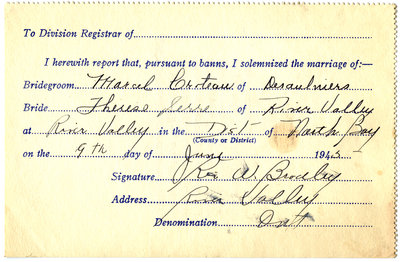 To Division Registrar of
I herewith report that, pursuant to banns, I solemnized the marriage of:—
Bridegroom Marcel Croteau of Desaulniers
Bride Therese Serre of River Valley
at River Valley in the Dist of North Bay
(County or District)
on the 9th day of June 1945
Signature
Address River Valley
Denomination